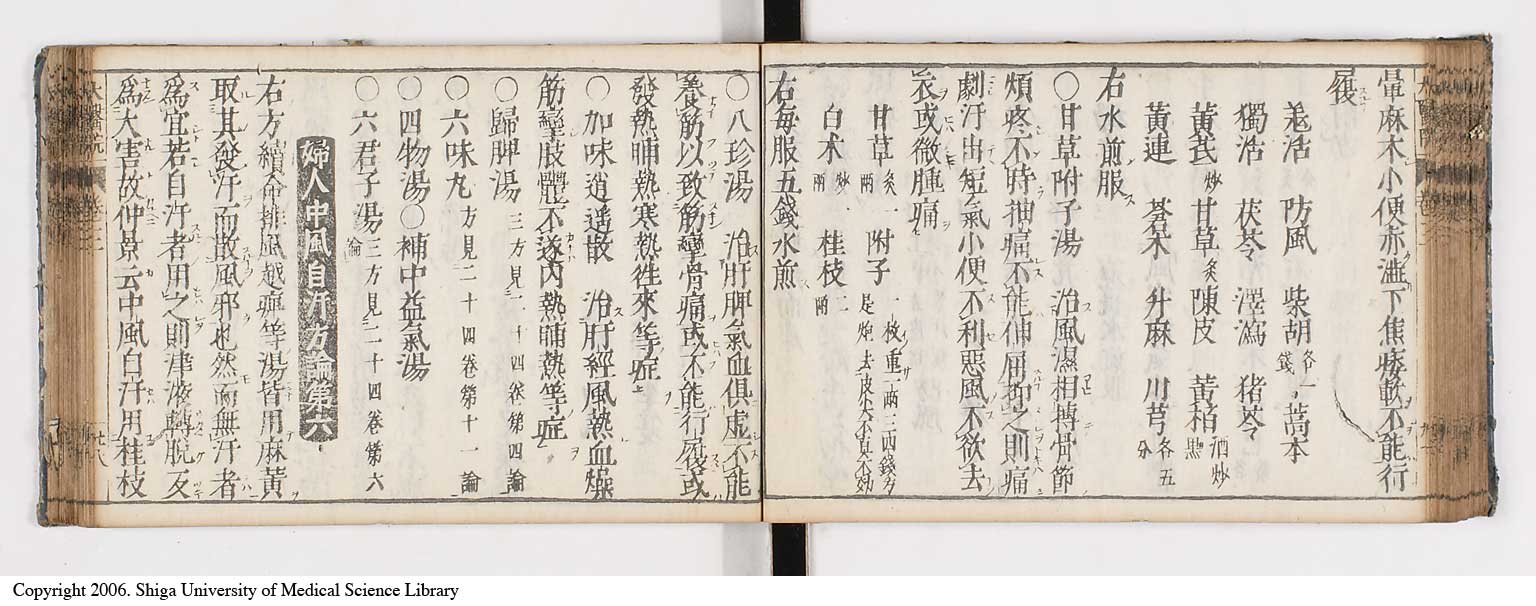 暈麻木小便赤澁下焦痿軟不能行
履
羗活　防風　柴胡各一錢　藁本
獨活　茯苓　澤瀉　猪苓
黃芪炒　甘草炙　陳皮　黃栢酒炒黑
黃連　蒼朮　升麻　川芎各五分
右水煎服
○甘草附子湯　治風濕相搏骨節
煩疼不時抽痛不能伸屈抑之則痛
劇汗出短氣小便不利惡風不欲去
衣或微腫痛
甘草炙一兩　附子
白朮炒一兩　桂枝二兩
右每服五錢水煎
○八珍湯　治肝脾氣血俱虛不能
養筋以致筋攣骨痛或不能行履或
發熱晡熱寒熱徃來等症
○加味逍遥散　治肝經風熱血燥
筋攣肢體不遂內熱晡熱等症
○歸脾湯三方見二十四卷第四論
○六味丸方見二十四卷第十一論
○四物湯○補中益氣湯
○六君子湯三方見二十四卷第六論
婦人中風自汗方論第六
右方續命排風越痺等湯皆用麻黃
取其發汗而散風邪也然而無汗者
爲宜若自汗者用之則津液轉脫反
爲大害故仲景云中風自汗用桂枝
Copyright 2006. Shiga University of Medical Science Library